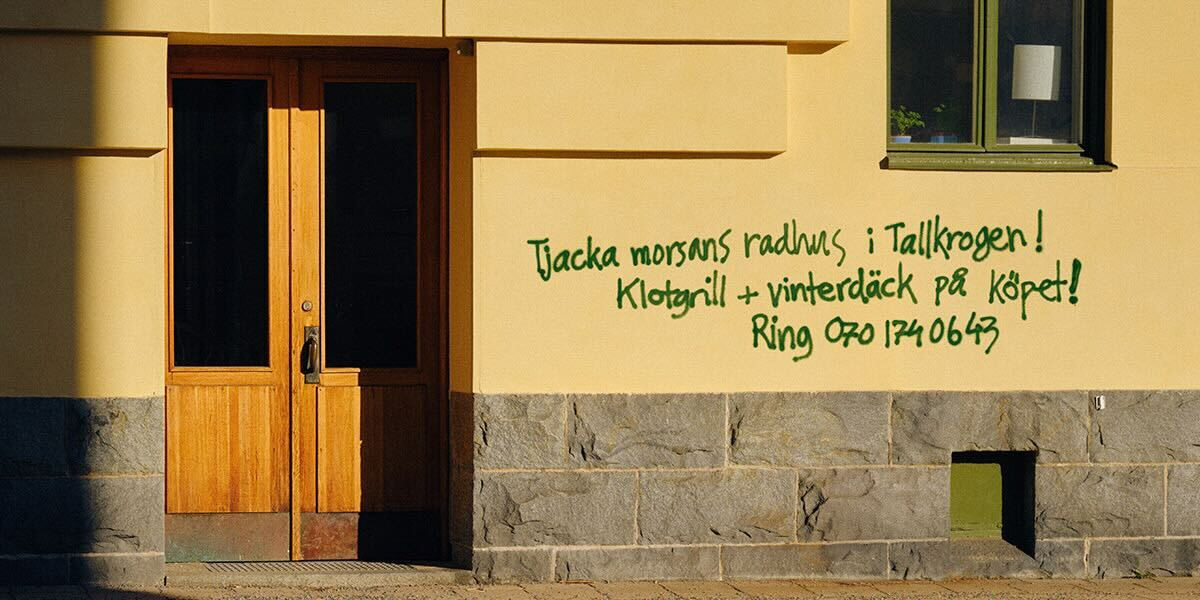 Tjacka morsans radhus i Tallkrogen!
Klotgrill + vinterdäck på köpet!
Ring 070 174 06 43